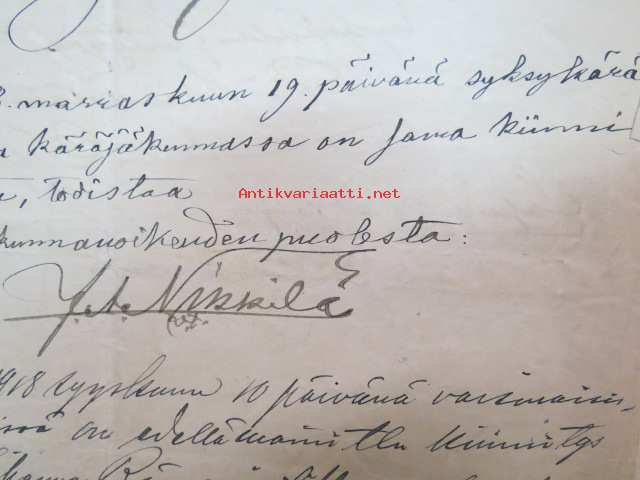 marraskuun 19. päivänä syksykärä
käräjäkunnassa on sama kiinni
todistaa
Antikvariaatti.net
kunnanoikeuden puolesta:
Nikkilä
1918 syyskuun 10 päivänä varsinaisis-
issä on edellämainittu kiinnitys